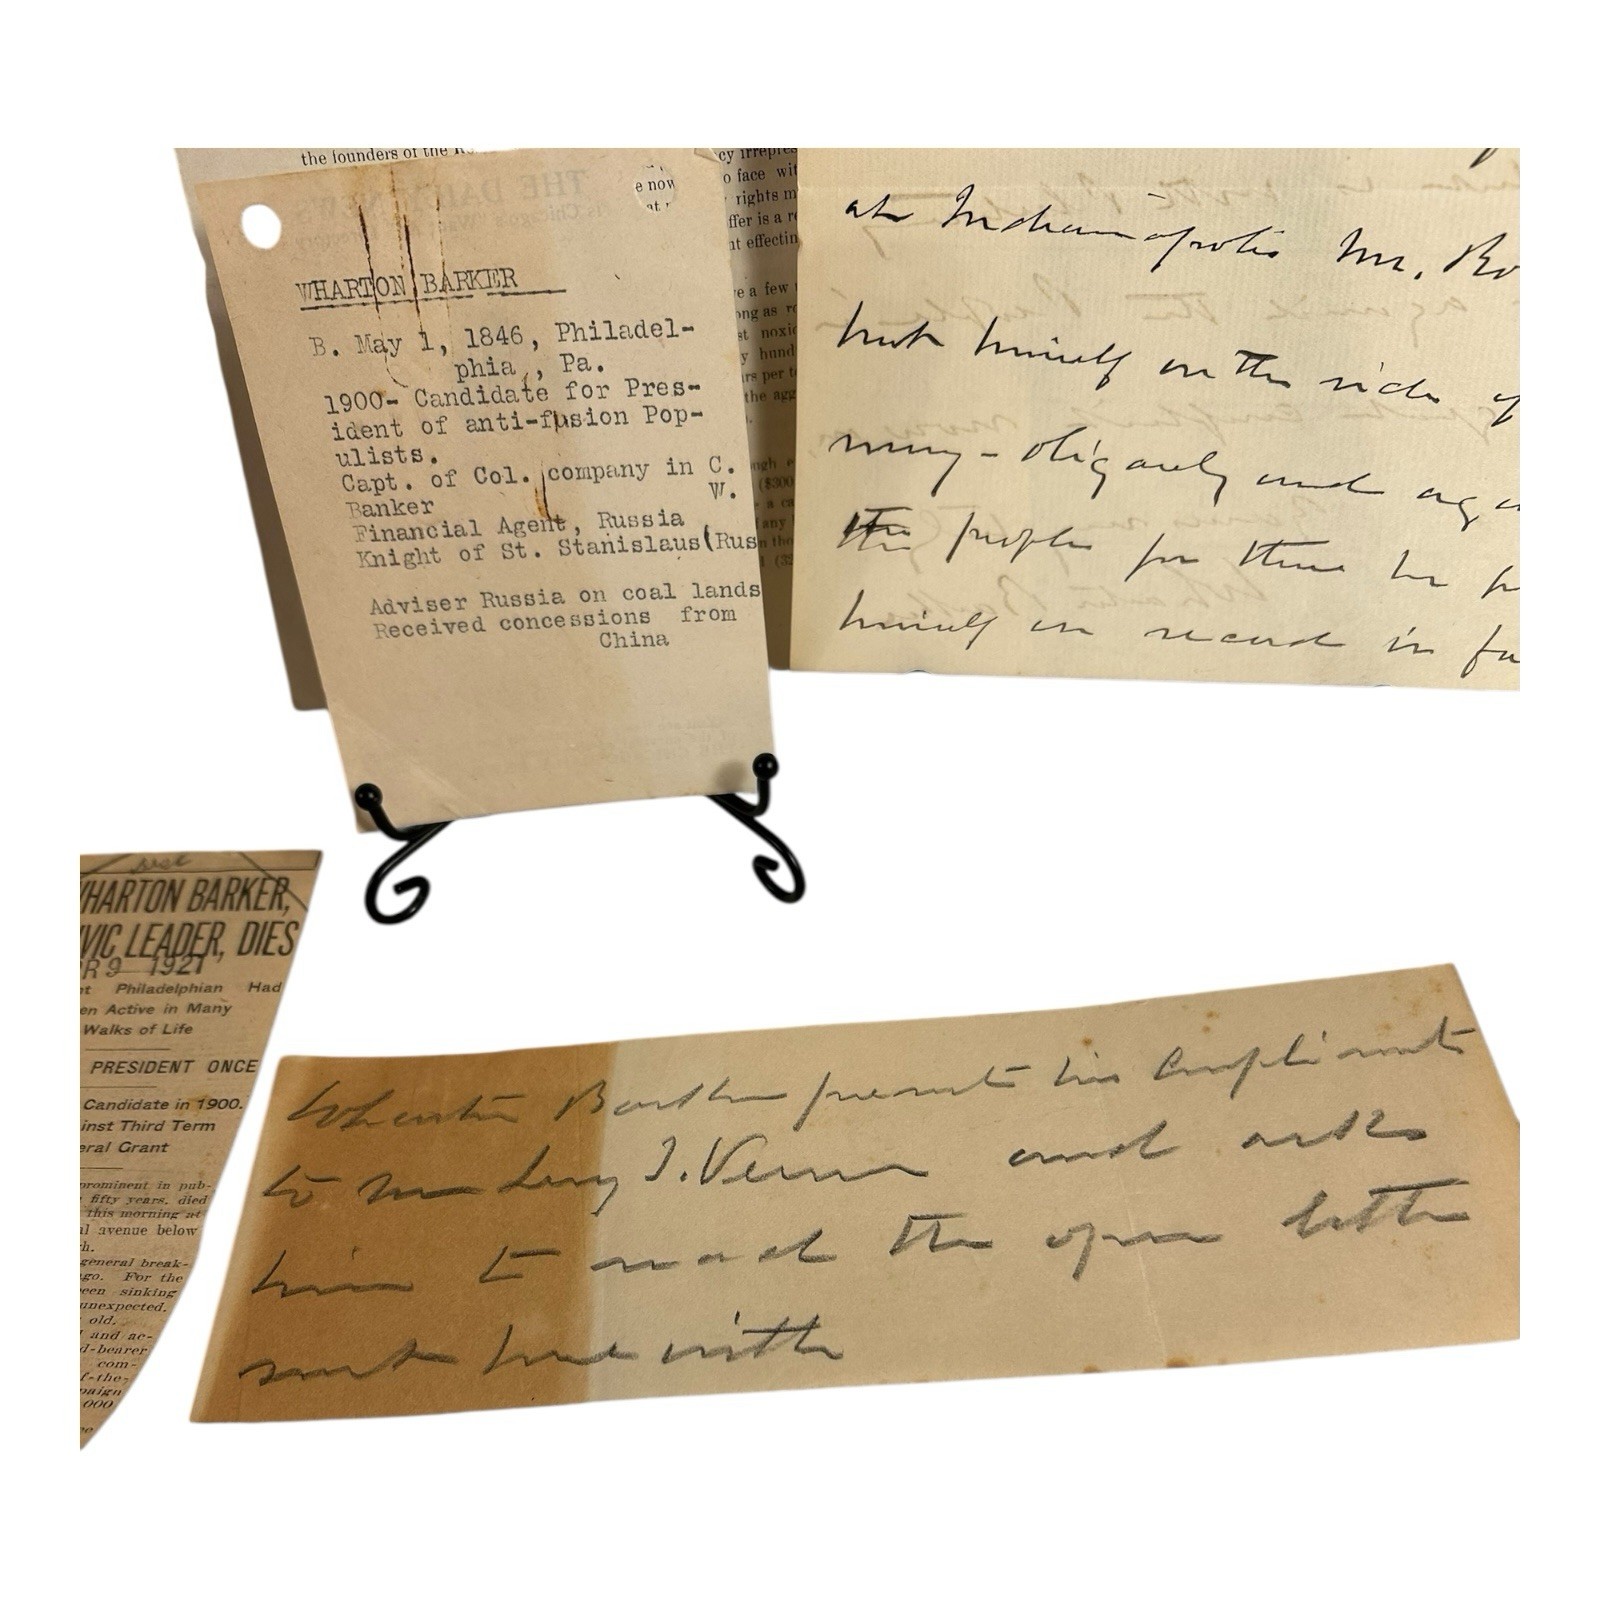 the founders of the
cy irrepres
e now
o face wit
at
rights m
ffer is a re
nt effectin
e a few
ong as
st noxi
y hund
rs per t
the agg
WHARTON BARKER
B. May 1, 1846, Philadel-
phia, Pa.
1900- Candidate for Pres-
ident of anti-fusion Pop-
ulists.
Capt. of Col. company in C.
W.
Banker
Financial Agent, Russia
Knight of St. Stanislaus(Rus
Adviser Russia on coal lands
Received concessions from
China
at Indianapolis Mr.
himself on the side of
oligarchy and
the people for there he
himself on record in
WHARTON BARKER,
VIC LEADER, DIES
R 9 1921
t Philadelphian Had
en Active in Many
Walks of Life
PRESIDENT ONCE
Candidate in 1900.
inst Third Term
eral Grant
prominent in pub-
fifty years, died
this morning at
l avenue below
h.
general break-
go. For the
een sinking
unexpected.
old.
and ac-
d-bearer
com-
f-the-
paign
000
Wharton Barker presents his compliments
to Mr Leroy J. Vernon and asks
him to read the open letter
sent herewith